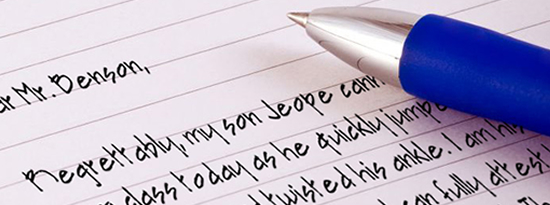 ar Mr. Benson,
Regrettably, my son Jeope cann
class today as he quickly jumpe
twisted his ankle. I am his
can fully attest